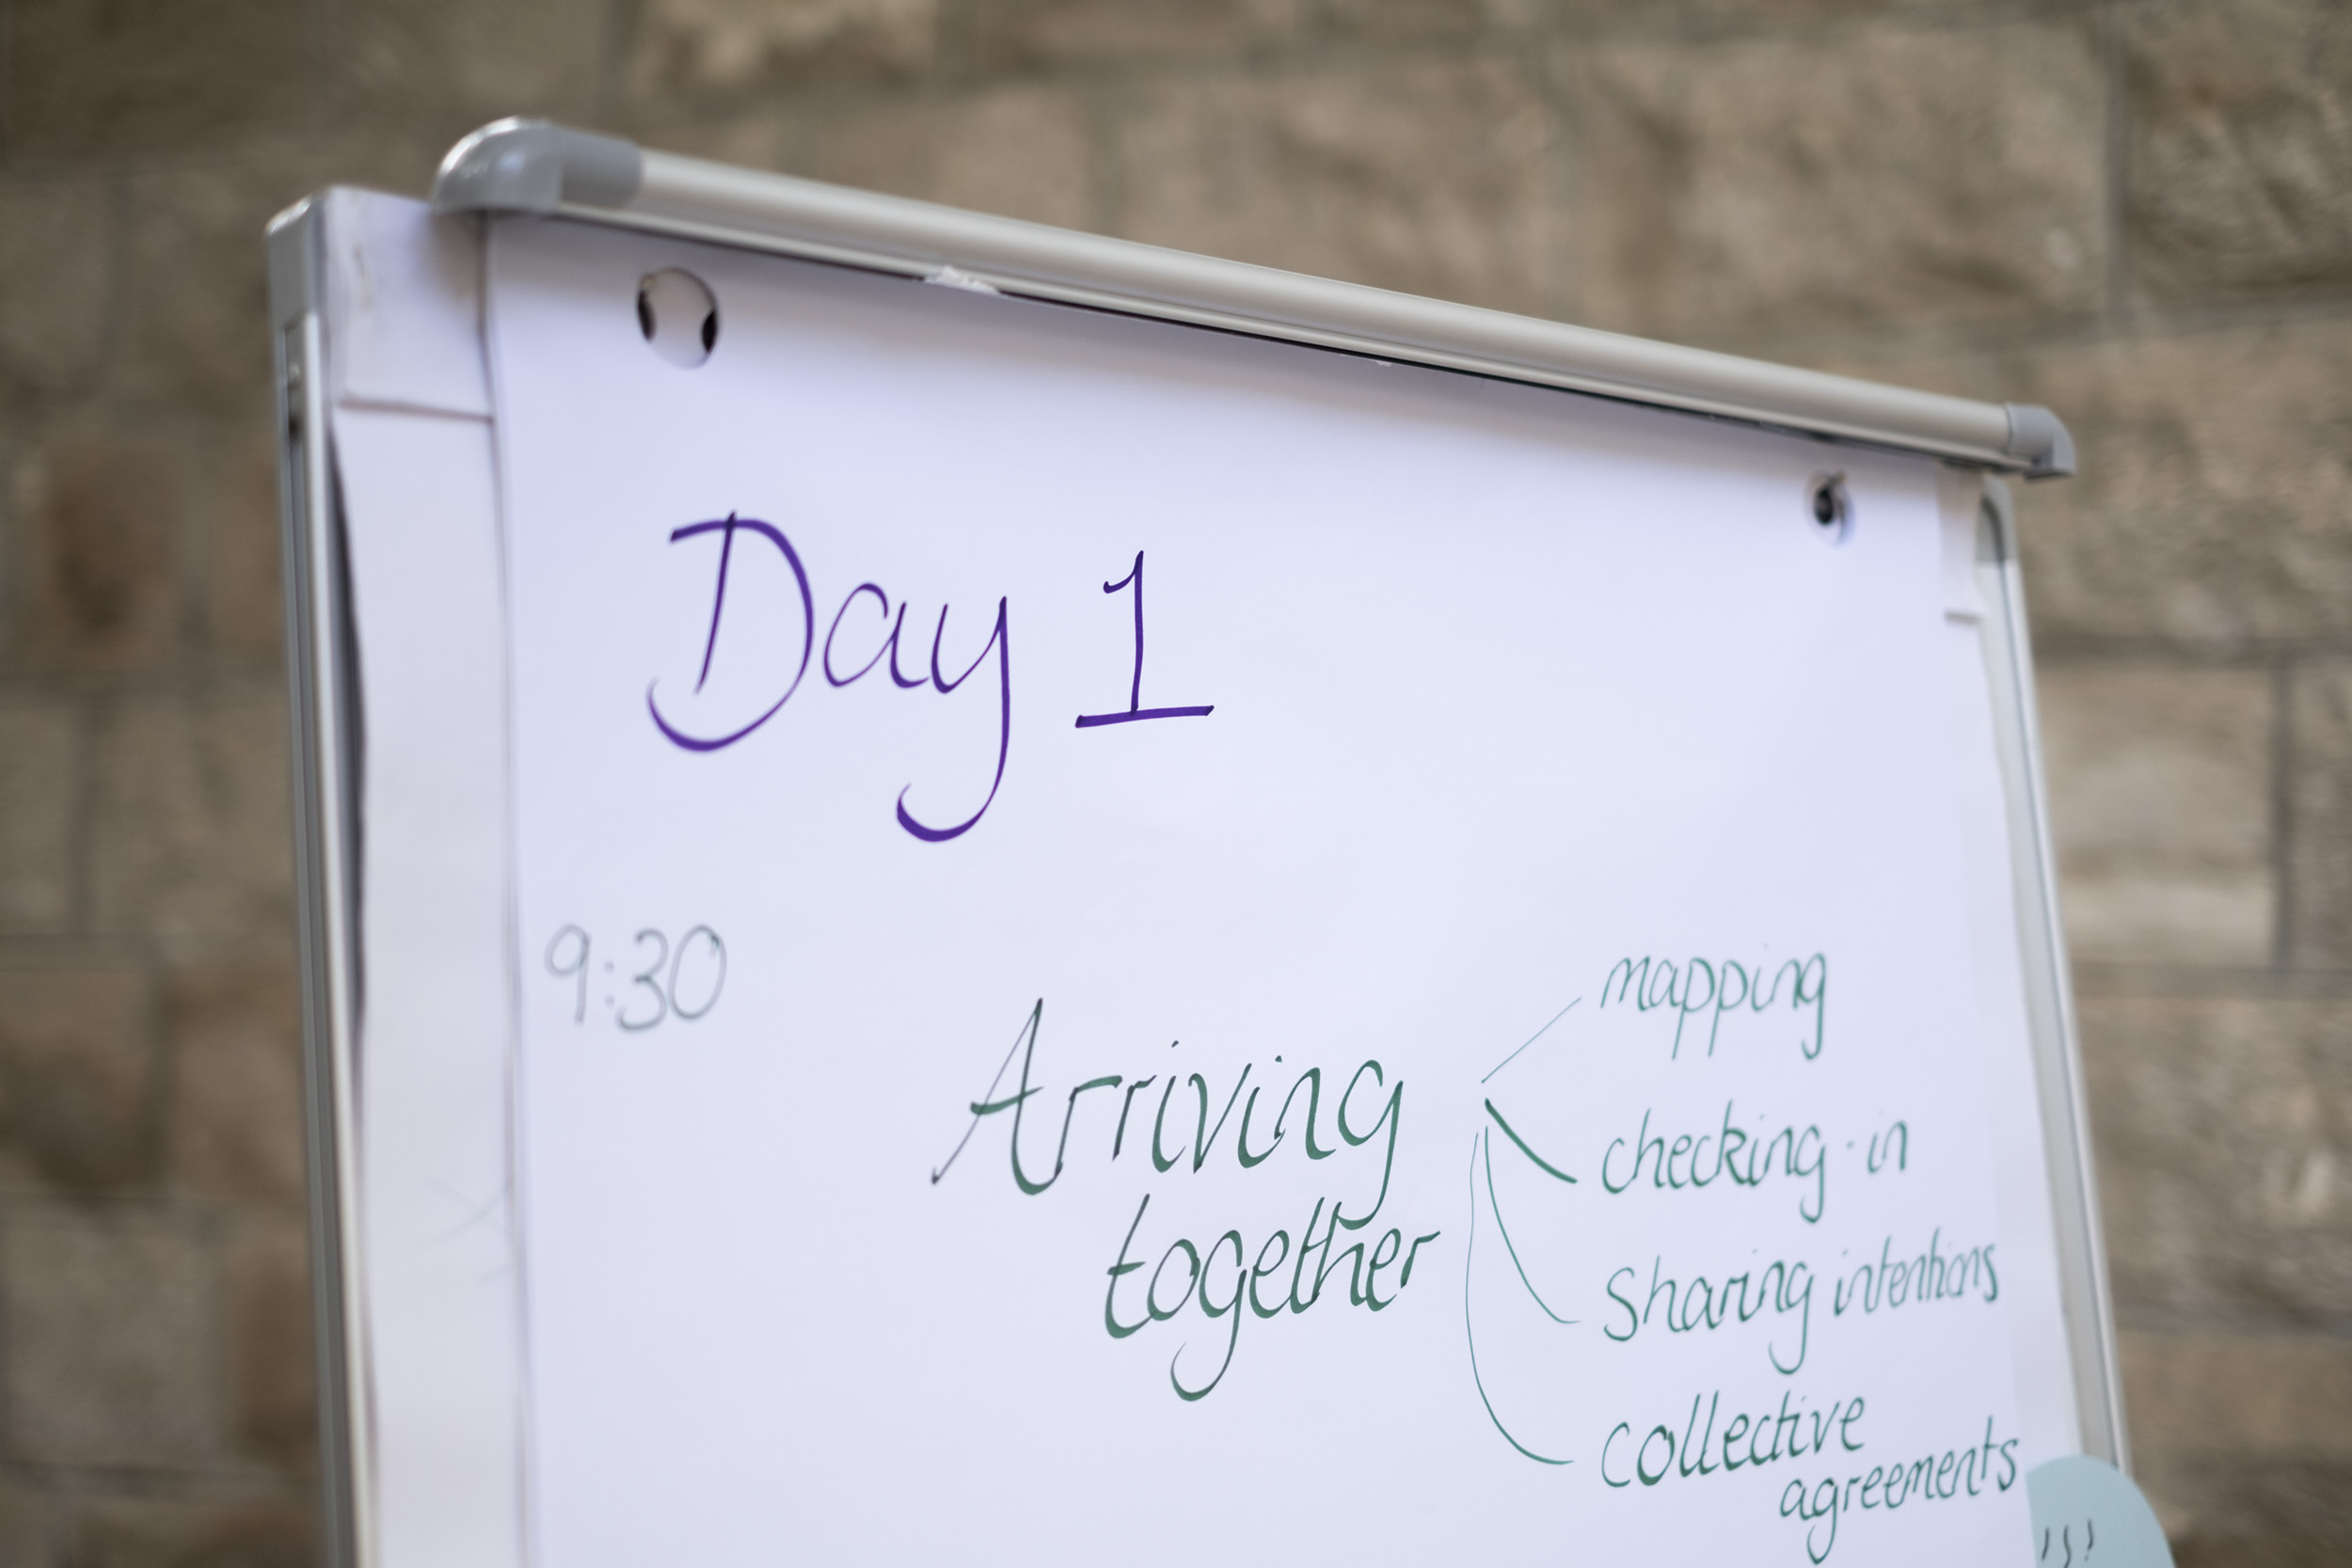 Day 1
9:30
Arriving
together
mapping
checking-in
Sharing intentions
collective
agreements